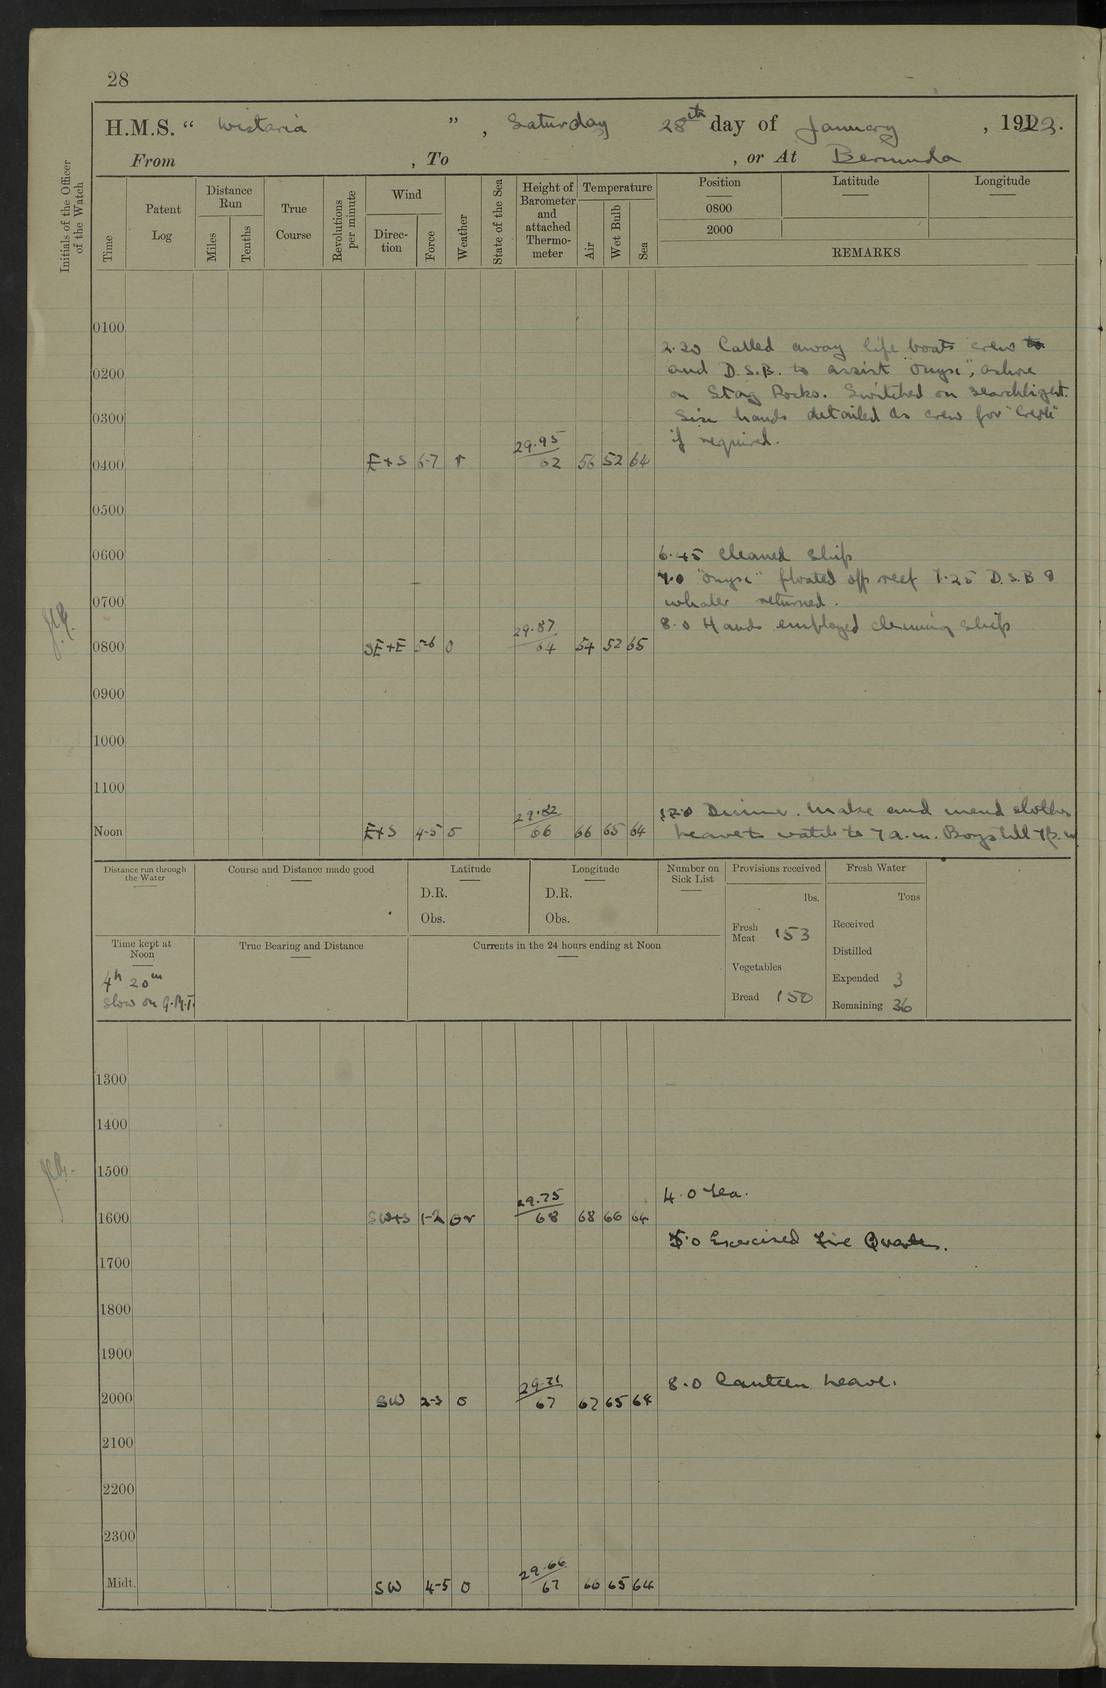 28
H.M.S. “ Wistaria ”, Saturday 28th day of January, 1922.
From , To , or At Bermuda
Initials of the Officer of the Watch
Time
Patent Log
Distance Run
Miles
Tenths
True Course
Revolutions per minute
Wind
Direction
Force
Weather
State of the Sea
Height of Barometer and attached Thermometer
Temperature
Air
Wet Bulb
Sea
Position Latitude Longitude
0800
2000
REMARKS
0100
2.20 Called away life boats crew
0200 and D.S.B. to assist "Onyx", ashore
on Stag Rocks. Switched on searchlight.
0300 Six hands detailed as crew for
if required.
0400 E+S 6-7 r 29.95 62 56 52 64
0500
0600 6.45 Cleaned Ship
7.0 "Onyx" floated off reef 7.25 D.S.B &
0700 whaler returned.
8.0 Hands employed cleaning ship
0800 SE+E 5-6 o 29.87 64 54 52 65
0900
1000
1100
12.0 Dinner. Make and mend clothes
Noon E+S 4-5 o 29.82 66 66 65 64 Leave to watch to 7 a.m. Boys till 7 p.m
Distance run through the Water
Course and Distance made good
Latitude
D.R.
Obs.
Longitude
D.R.
Obs.
Number on Sick List
Provisions received
lbs.
Fresh Meat 153
Vegetables
Bread 150
Fresh Water
Tons
Received
Distilled
Expended 3
Remaining 36
Time kept at Noon
4h 20m
slow on G.M.T.
True Bearing and Distance
Currents in the 24 hours ending at Noon
1300
1400
1500
4.0 Tea.
1600 SW+S 1-2 or 29.75 68 68 66 64
5.0 Exercised Fire Quarters.
1700
1800
1900
8.0 Canteen Leave.
2000 SW 2-3 o 29.71 67 67 65 64
2100
2200
2300
Midt. SW 4-5 o 29.66 67 66 65 64